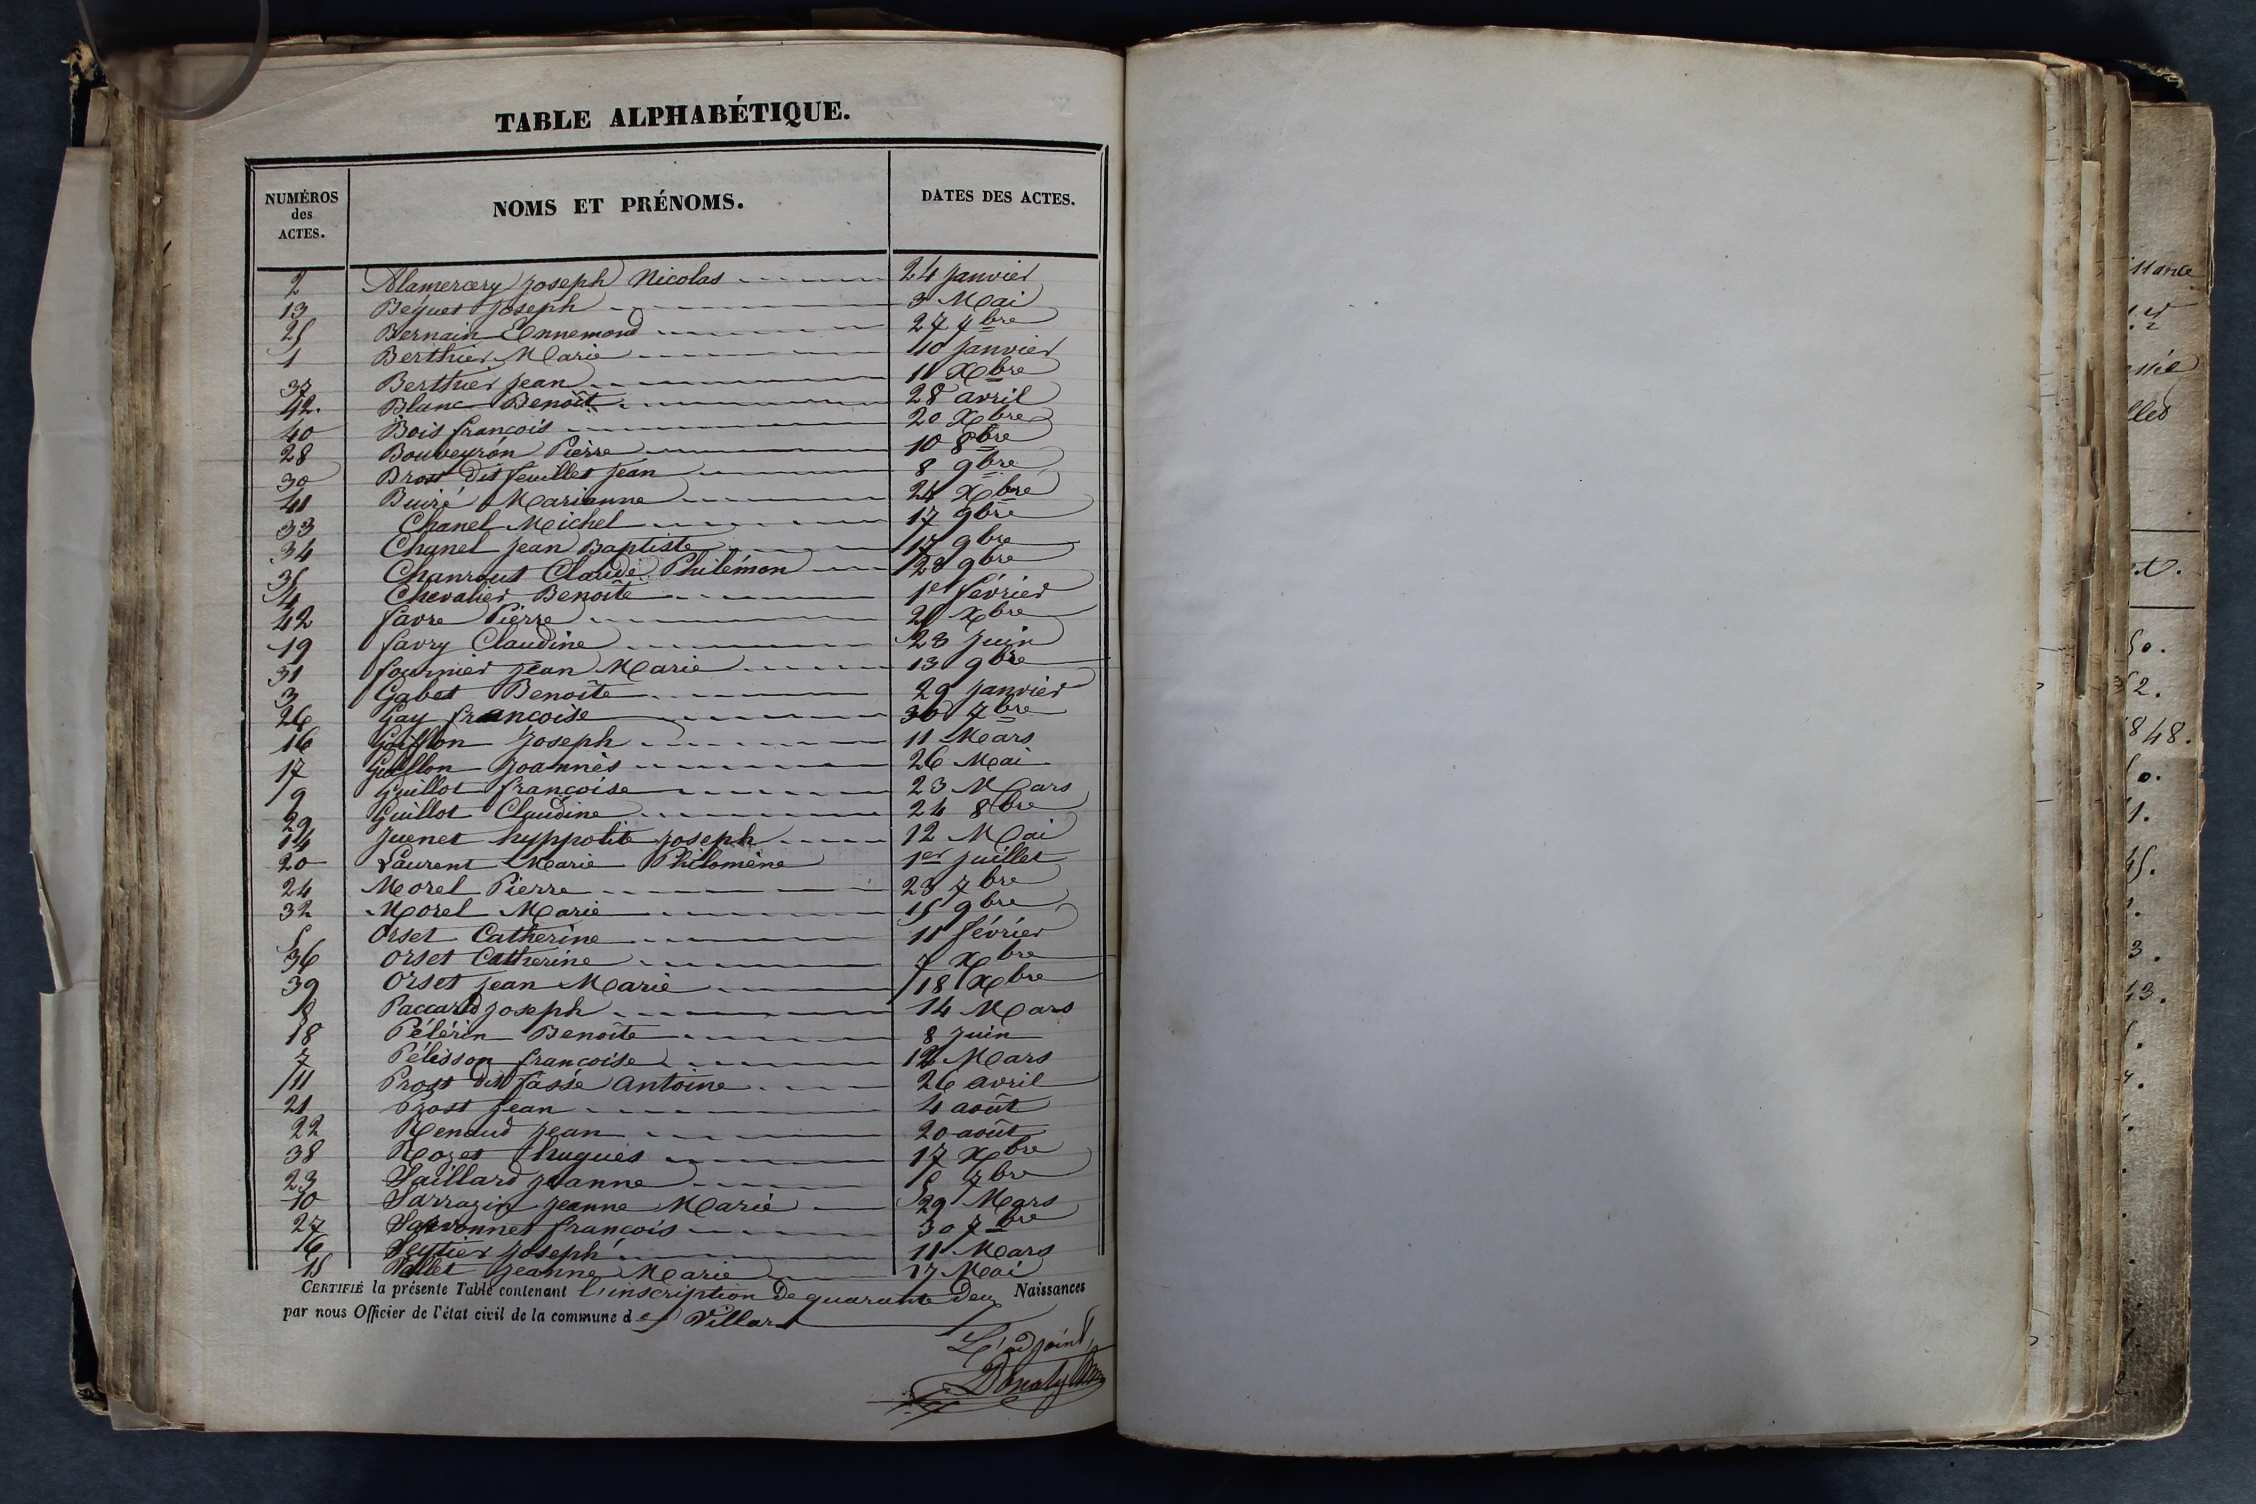 TABLE ALPHABÉTIQUE.
NUMÉROS des ACTES. NOMS ET PRÉNOMS. DATES DES ACTES.
2 Alamercery Joseph Nicolas 24 Janvier
13 Béguet Joseph 3 Mai
25 Bernain Ennemond 27 7bre
1 Berthier Marie 10 Janvier
37 Berthier Jean 11 Xbre
12. Blanc Benoît 28 avril
40 Bois françois 20 Xbre
28 Bouveyrón Pierre 10 8bre
30 Brost dit feuillet Jean 8 9bre
41 Buiré Marianne 24 Xbre
33 Chanel Michel 17 9bre
34 Chanel Jean Baptiste 17 9bre
35 Chanrout Claude Philémon 28 9bre
4 Chevalier Benoîte 1er février
42 favre Pierre 21 Xbre
19 favry Claudine 23 Juin
31 fournier Jean Marie 13 9bre
3 Gabet Benoîte 29 Janvier
26 Gay françoise 30 7bre
16 Joseph 11 Mars
17 Guillon Joannès 26 Mai
9 Guillot françoise 23 Mars
29 Guillot Claudine 24 8bre
14 Juenet hyppolite Joseph 12 Mai
20 Laurent Marie Philomène 1er Juillet
24 Morel Pierre 23 7bre
32 Morel Marie 15 9bre
5 Orset Catherine 11 février
36 Orset Catherine 7 Xbre
39 Orset Jean Marie 18 Xbre
8 Paccard Joseph 14 Mars
18 Pélérin Benoîte 8 Juin
7 Pélisson françoise 12 Mars
11 Prost dit fassé Antoine 26 avril
21 Prost Jean 4 août
22 Renaud Jean 20 août
38 Rozet hugues 17 Xbre
23 Saillard Jeanne 5 7bre
10 Sarrazin Jeanne Marie 29 Mars
27 Savonnet françois 30 7bre
6 Seytier Joseph 11 Mars
15 Vallet Jeanne Marie 17 Mai
CERTIFIÉ la présente Table contenant l'inscription de quarante deux Naissances
par nous Officier de l'état civil de la commune de Villars
L'adjoint,